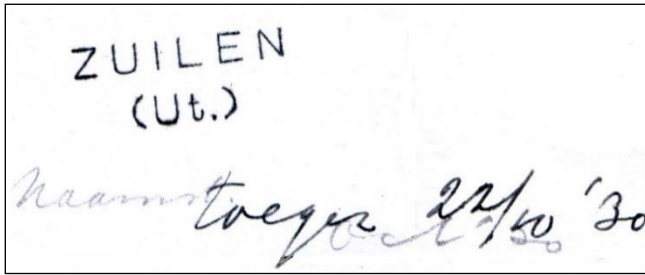 ZUILEN
(Ut.)
Naamst. toegev 22/10 '30